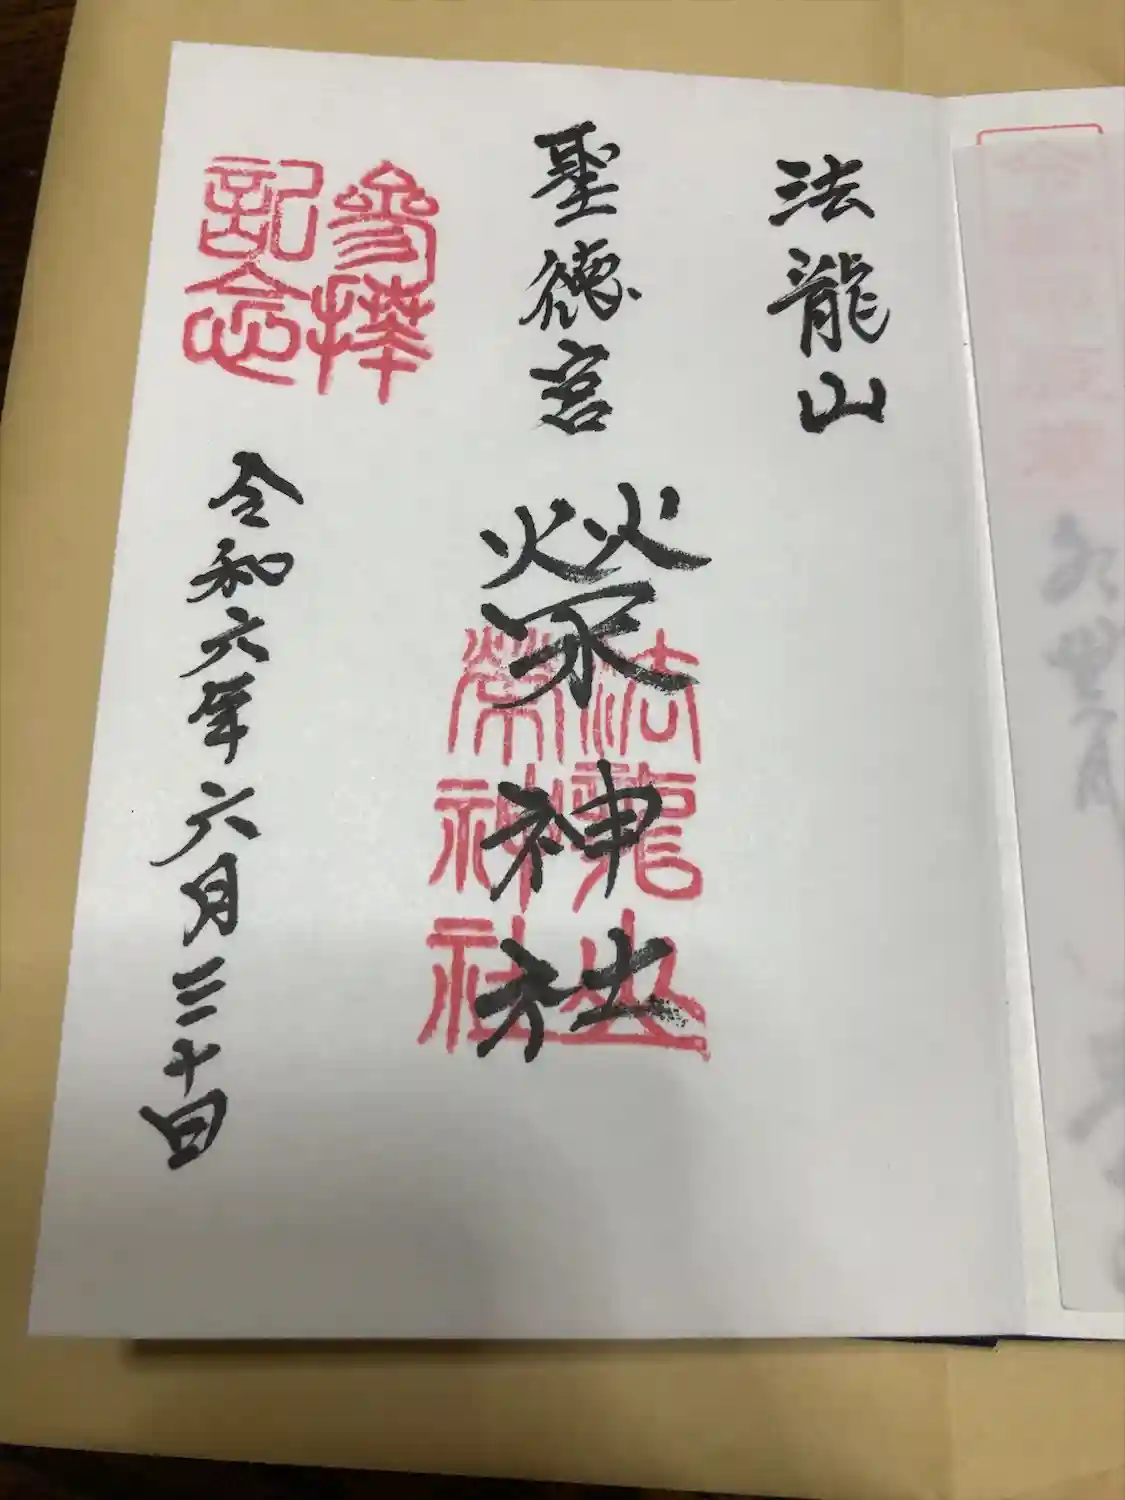 法龍山
聖徳宮
榮神社
法龍山
榮神社
参拝
記念
令和六年六月三十日